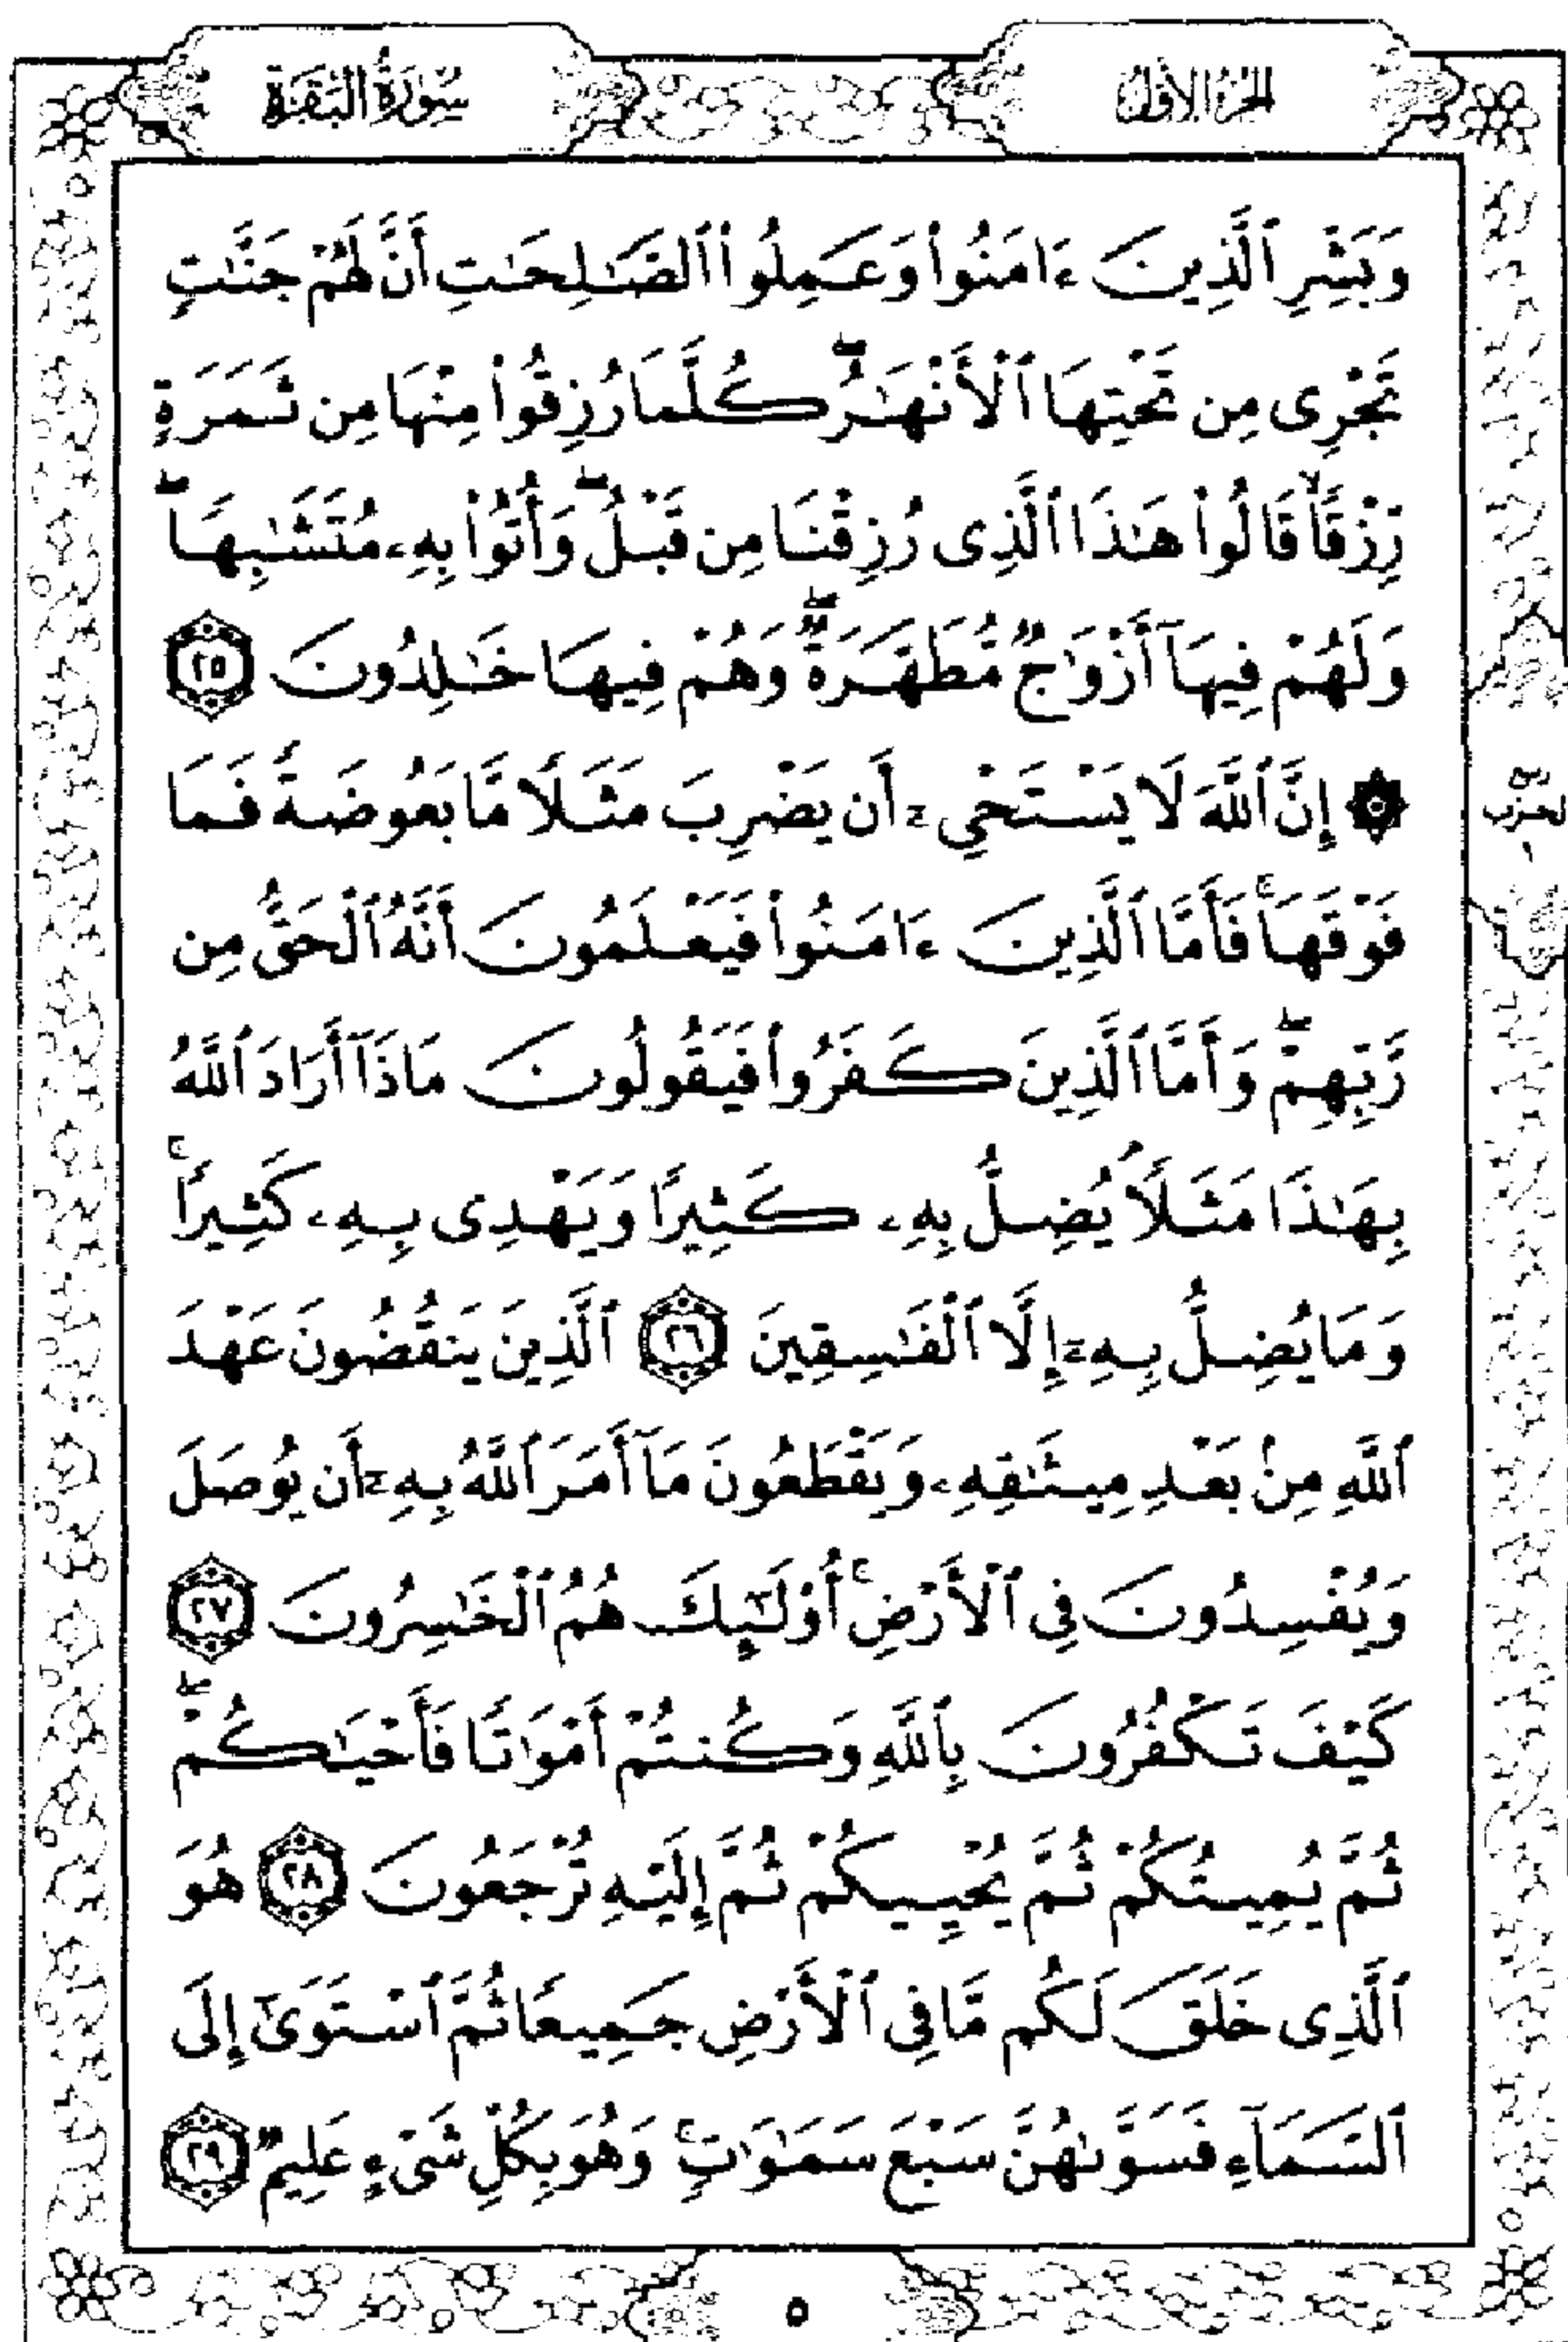 الجزء الأول
سورة البقرة
وَبَشِّرِ ٱلَّذِينَ ءَامَنُوا۟ وَعَمِلُوا۟ ٱلصَّـٰلِحَـٰتِ أَنَّ لَهُمْ جَنَّـٰتٍ
تَجْرِى مِن تَحْتِهَا ٱلْأَنْهَـٰرُ ۖ كُلَّمَا رُزِقُوا۟ مِنْهَا مِن ثَمَرَةٍ
رِّزْقًا ۙ قَالُوا۟ هَـٰذَا ٱلَّذِى رُزِقْنَا مِن قَبْلُ ۖ وَأُتُوا۟ بِهِۦ مُتَشَـٰبِهًا ۖ
وَلَهُمْ فِيهَآ أَزْوَٰجٌ مُّطَهَّرَةٌ ۖ وَهُمْ فِيهَا خَـٰلِدُونَ ٢٥
۞ إِنَّ ٱللَّهَ لَا يَسْتَحْىِۦٓ أَن يَضْرِبَ مَثَلًا مَّا بَعُوضَةً فَمَا
الحزب
١
فَوْقَهَا ۚ فَأَمَّا ٱلَّذِينَ ءَامَنُوا۟ فَيَعْلَمُونَ أَنَّهُ ٱلْحَقُّ مِن
رَّبِّهِمْ ۖ وَأَمَّا ٱلَّذِينَ كَفَرُوا۟ فَيَقُولُونَ مَاذَآ أَرَادَ ٱللَّهُ
بِهَـٰذَا مَثَلًا ۘ يُضِلُّ بِهِۦ كَثِيرًا وَيَهْدِى بِهِۦ كَثِيرًا ۚ
وَمَا يُضِلُّ بِهِۦٓ إِلَّا ٱلْفَـٰسِقِينَ ٢٦ ٱلَّذِينَ يَنقُضُونَ عَهْدَ
ٱللَّهِ مِنۢ بَعْدِ مِيثَـٰقِهِۦ وَيَقْطَعُونَ مَآ أَمَرَ ٱللَّهُ بِهِۦٓ أَن يُوصَلَ
وَيُفْسِدُونَ فِى ٱلْأَرْضِ ۚ أُو۟لَـٰٓئِكَ هُمُ ٱلْخَـٰسِرُونَ ٢٧
كَيْفَ تَكْفُرُونَ بِٱللَّهِ وَكُنتُمْ أَمْوَٰتًا فَأَحْيَـٰكُمْ ۖ
ثُمَّ يُمِيتُكُمْ ثُمَّ يُحْيِيكُمْ ثُمَّ إِلَيْهِ تُرْجَعُونَ ٢٨ هُوَ
ٱلَّذِى خَلَقَ لَكُم مَّا فِى ٱلْأَرْضِ جَمِيعًا ثُمَّ ٱسْتَوَىٰٓ إِلَى
ٱلسَّمَآءِ فَسَوَّىٰهُنَّ سَبْعَ سَمَـٰوَٰتٍ ۚ وَهُوَ بِكُلِّ شَىْءٍ عَلِيمٌ ٢٩
٥